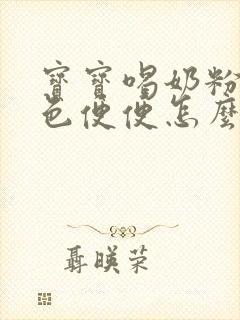 寶寶喝奶粉
色便便怎麼
聶暎荣